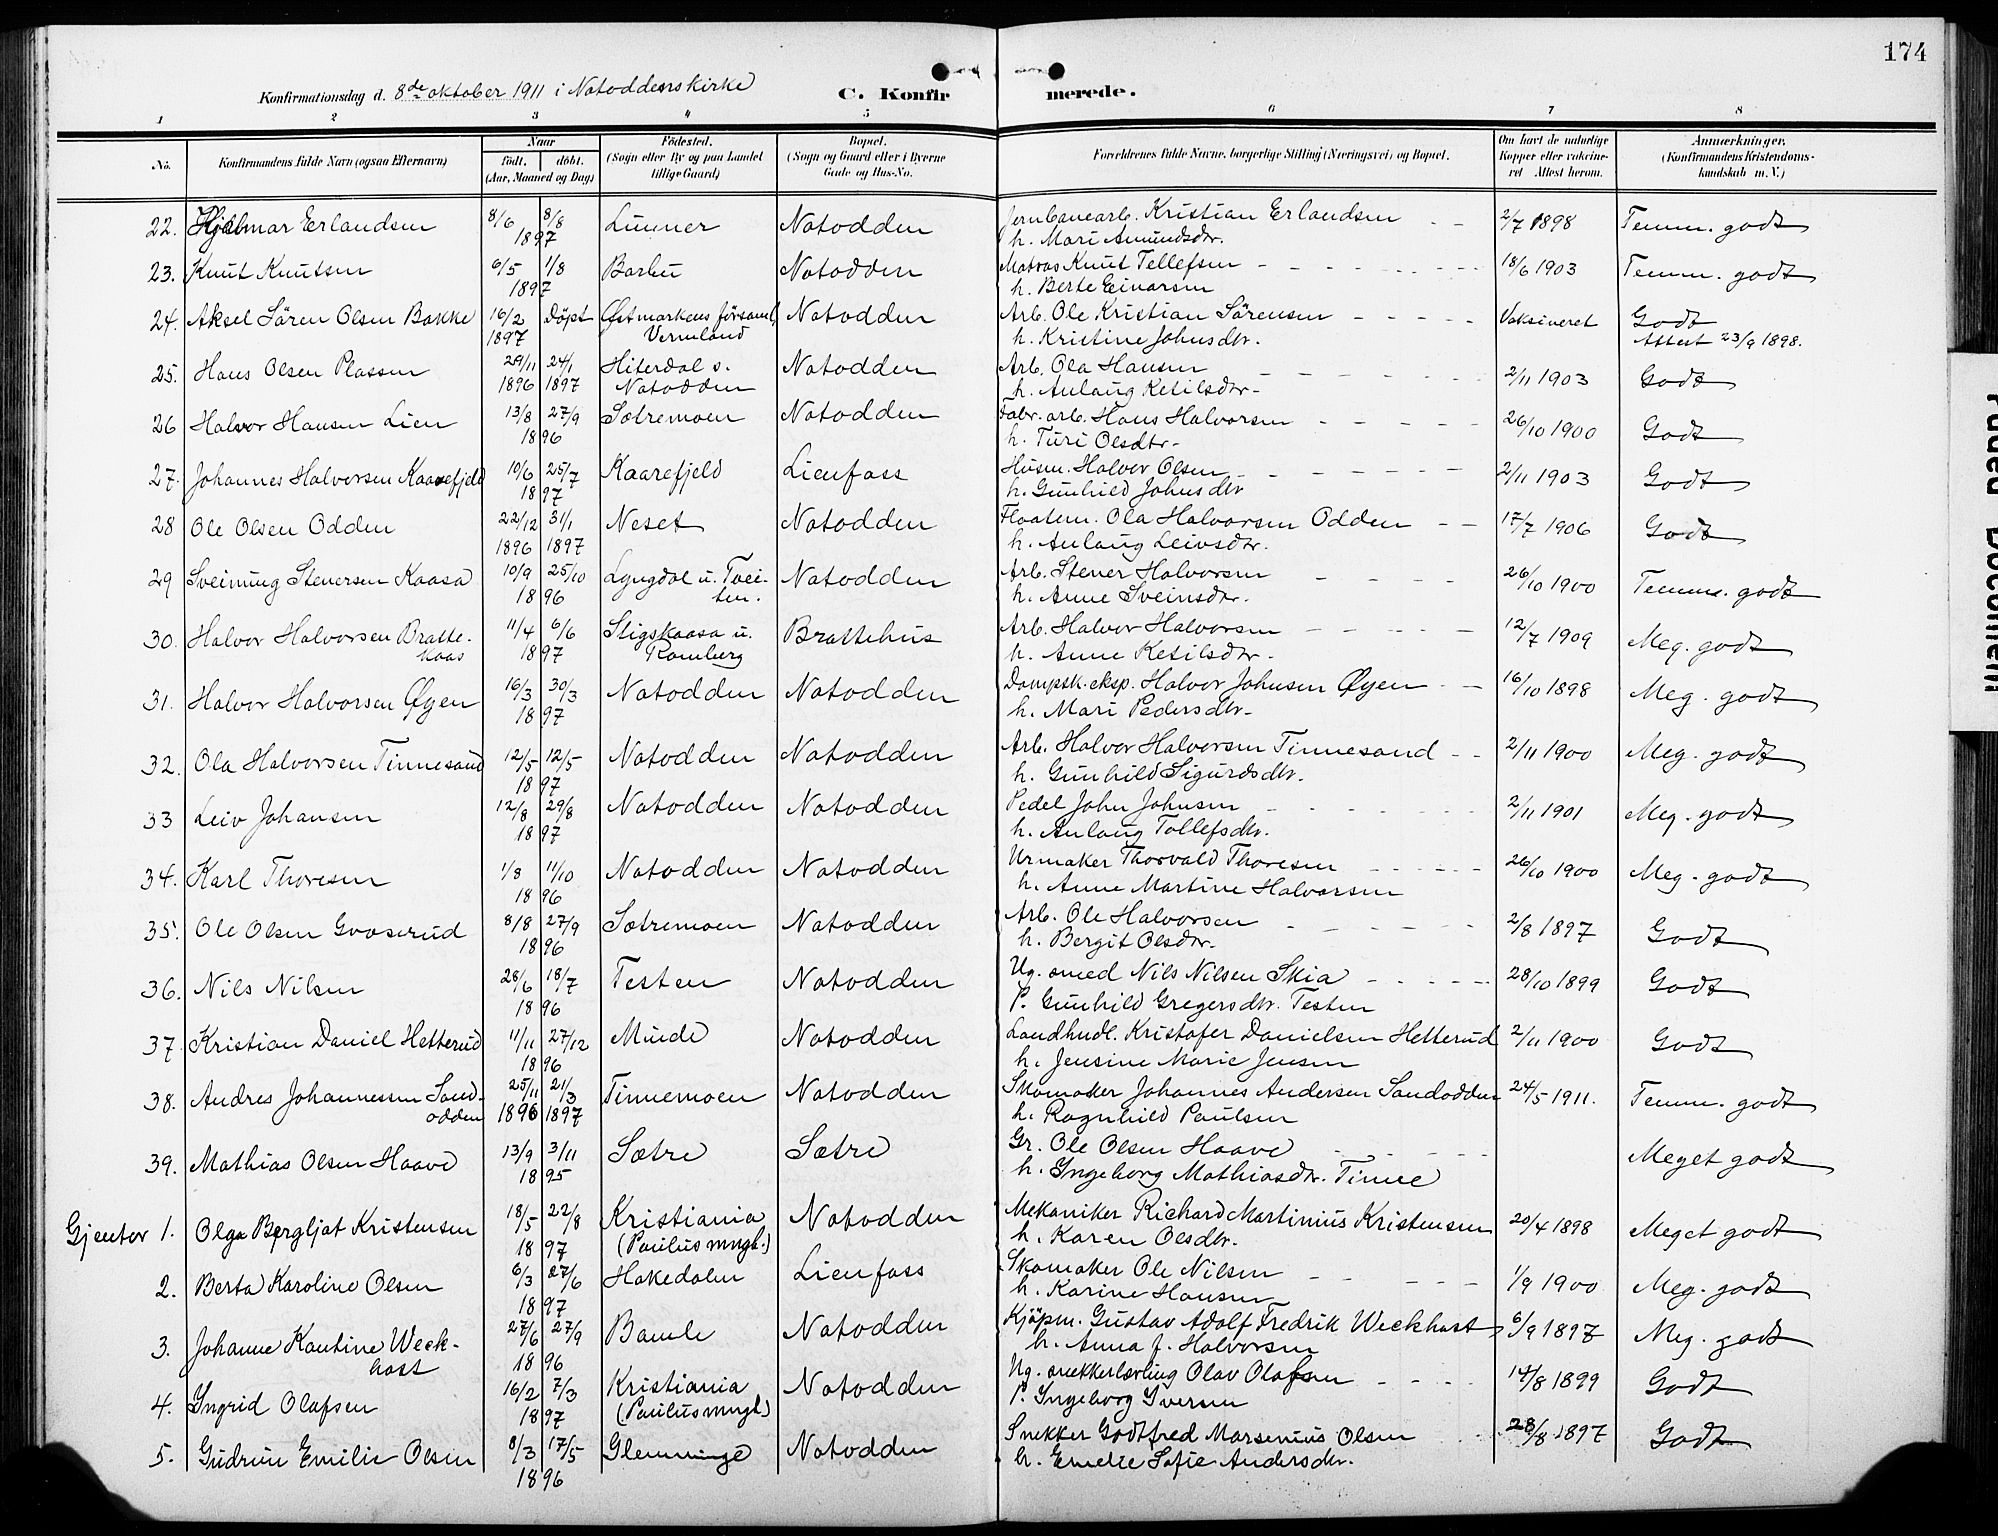 174
Konfirmationsdag d. 8de oktober 1911 i Notoddens kirke C. Konfirmerede.
1 2 3 4 5 6 7 8
No. Konfirmandens fulde Navn (ogsaa Efternavn) Naar födt. döbt. (Aar, Maaned og Dag) Födested. (Sogn eller By og paa Landet tillige Gaard) Bopæl. (Sogn og Gaard eller i Byerne Gade og Hus-No. Forældrenes fulde Navne, borgerlige Stilling (Næringsvei) og Bopæl. Om havt de naturlige Kopper eller vakcineret Attest herom. Anmærkninger. (Konfirmandens Kristendomskundskab m. V.)
22. Hjalmar Erlandsen 8/6 8/8 Lunner Notodden Jernbanearb. Kristian Erlandsen 2/7 1898 Temm. godt
1897 h. Mari Amundsdtr.
23. Knut Knutsen 6/5 1/8 Barbu Notodden Matros Knut Tellefsen 18/6 1903 Temm. godt
1897 h. Berte Einarsen
24. Aksel Sören Olsen Bakke 16/2 Döpt Østmarkens församl. Notodden Arb. Ole Kristian Sörensen Vaksineret Godt
1897 Vermland h. Kristine Johnsdtr. Attest 23/9 1898.
25. Hans Olsen Plassen 29/11 24/1 Hiterdal s. Notodden Arb. Ola Hansen 2/11 1903 Godt
1896 1897 Notodden h. Aulaug Ketilsdtr
26 Halvor Hansen Lien 13/8 27/9 Sætremoen Notodden Fabr. arb. Hans Halvorsen 26/10 1900 Godt
1896 h. Turi Olsdtr
27. Johannes Halvorsen Kaarefjeld 10/6 25/7 Kaarefjeld Lienfoss Husm. Halvor Olsen 2/11 1903 Godt
1897 h. Gunhild Johnsdtr
28 Ole Olsen Odden 22/12 31/1 Neset Notodden Floatem. Ola Halvorsen Odden 17/7 1906 Godt
1896 1897 h. Aulaug Leivsdtr.
29 Sveinung Stenersen Kaasa 10/9 25/10 Lyngdal u. Tvei- Notodden Arb. Stener Halvorsen 26/10 1900 Temm. godt
1896 ten. h. Anne Sveinsdtr.
30. Halvor Halvorsen Bratte- 11/4 6/6 Stigskaasa u. Brattehus Arb. Halvor Halvorsen 12/7 1909 Meg. godt
kaas 1897 Romberg h. Anne Ketilsdtr
31. Halvor Halvorsen Øyen 16/3 30/3 Notodden Notodden Dampsk. eksp. Halvor Johnsen Øyen 16/10 1898 Meg. godt
1897 h. Mari Pedersdtr
32. Ola Halvorsen Tinnesand 12/5 12/5 Notodden Notodden Arb. Halvor Halvorsen Tinnesand 2/11 1900 Meg. godt
1897 h. Gunhild Sigurdsdtr.
33 Leiv Johansen 12/8 29/8 Notodden Notodden Pedel John Johnsen 2/11 1901 Meg. godt
1897 h. Aulaug Tollefsdtr.
34. Karl Thoresen 1/8 11/10 Notodden Notodden Urmaker Thorvald Thoresen 26/10 1900 Meg. godt
1896 h. Anne Martine Halvorsen
35. Ole Olsen Groserud 8/8 27/9 Sætremoen Notodden Arb. Ole Halvorsen 2/8 1897 Godt
1896 h. Bergit Olsdtr.
36. Nils Nilsen 28/6 18/7 Testen Notodden Ug. smed Nils Nilsen Skia 28/10 1899 Godt
1896 P. Gunhild Gregersdtr. Testen
37. Kristian Daniel Hetterud 11/11 27/12 Minde Notodden Landhndl. Kristofer Danielsen Hetterud 2/11 1900 Godt
1896 h. Jensine Marie Jensen
38. Andres Johannessen Sand- 25/11 21/3 Tinnemoen Notodden Skomaker Johannes Andersen Sandodden 24/5 1911. Temm. godt
odden 1896 1897 h. Ragnhild Paulsen
39. Mathias Olsen Haave 13/9 3/11 Sætre Sætre Gr. Ole Olsen Haave Meget godt
1895 h. Ingeborg Mathiasdtr. Tinne
Gjenter 1. Olga Bergljot Kristensen 18/5 22/8 Kristiania Notodden Mekaniker Richard Martinius Kristensen 20/4 1898 Meget godt
1897 (Paulus mngh.) h. Karen Olsdtr.
2. Berta Karoline Olsen 6/3 27/6 Hakedalen Lienfoss Skomaker Ole Nilsen 1/9 1900 Meg. godt
1897 h. Karine Hansen
3. Johanne Kantine Weck- 27/6 27/9 Bamle Notodden Kjöpm. Gustav Adolf Fredrik Weckhost 6/9 1897 Meg. godt
host 1896 h. Anna f. Halvorsen
4. Yngrid Olafsen 16/2 7/3 Kristiania Notodden Ug. snekkerlærling Olav Olafsen 14/8 1899 Godt
1897 (Paulus mngh) P. Ingeborg Iversen
5. Gudrun Emilie Olsen 8/3 17/5 Glemminge Notodden Snekker Godtfred Marsenius Olsen 28/8 1897 Godt
1896 h. Emelie Sofie Andersdtr.